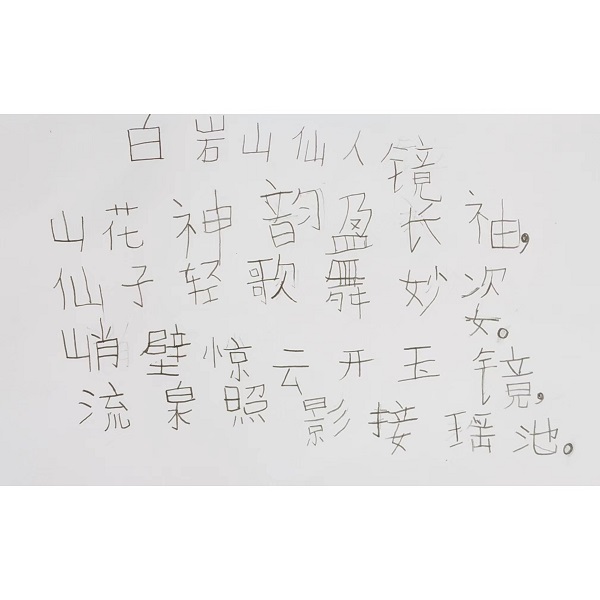 白岩山仙人镜
山花神韵盈长袖,
仙子轻歌舞妙姿。
峭壁惊云开玉镜,
流泉照影接瑶池。